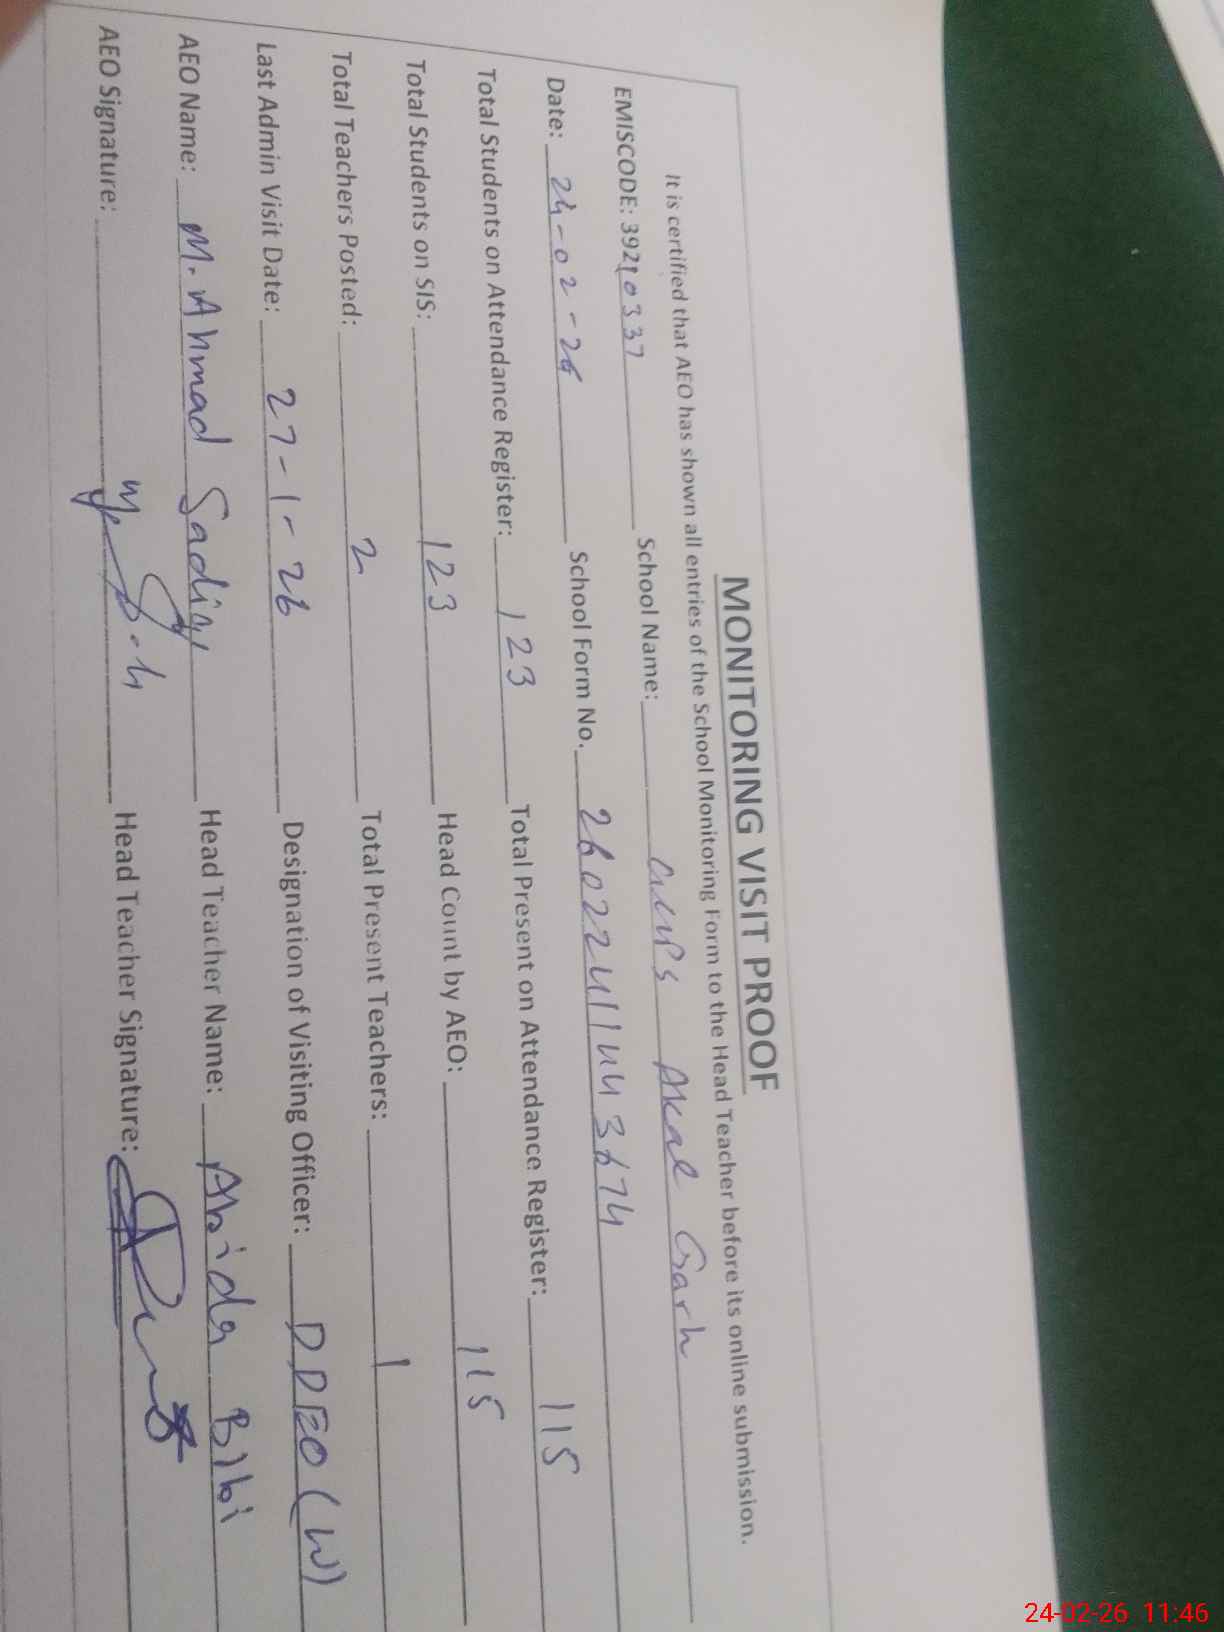 MONITORING VISIT PROOF
It is certified that AEO has shown all entries of the School Monitoring Form to the Head Teacher before its online submission.
EMISCODE: 39210337 School Name: GMPS Akal Garh
Date: 24-02-26 School Form No. 26022411443674
Total Students on Attendance Register: 123 Total Present on Attendance Register: 115
Total Students on SIS: 123 Head Count by AEO: 115
Total Teachers Posted: 2 Total Present Teachers: 1
Last Admin Visit Date: 27-1-26 Designation of Visiting Officer: DDEO (W)
AEO Name: M. Ahmad Sadiq Head Teacher Name: Abida Bibi
AEO Signature: Head Teacher Signature:
24-02-26 11:46